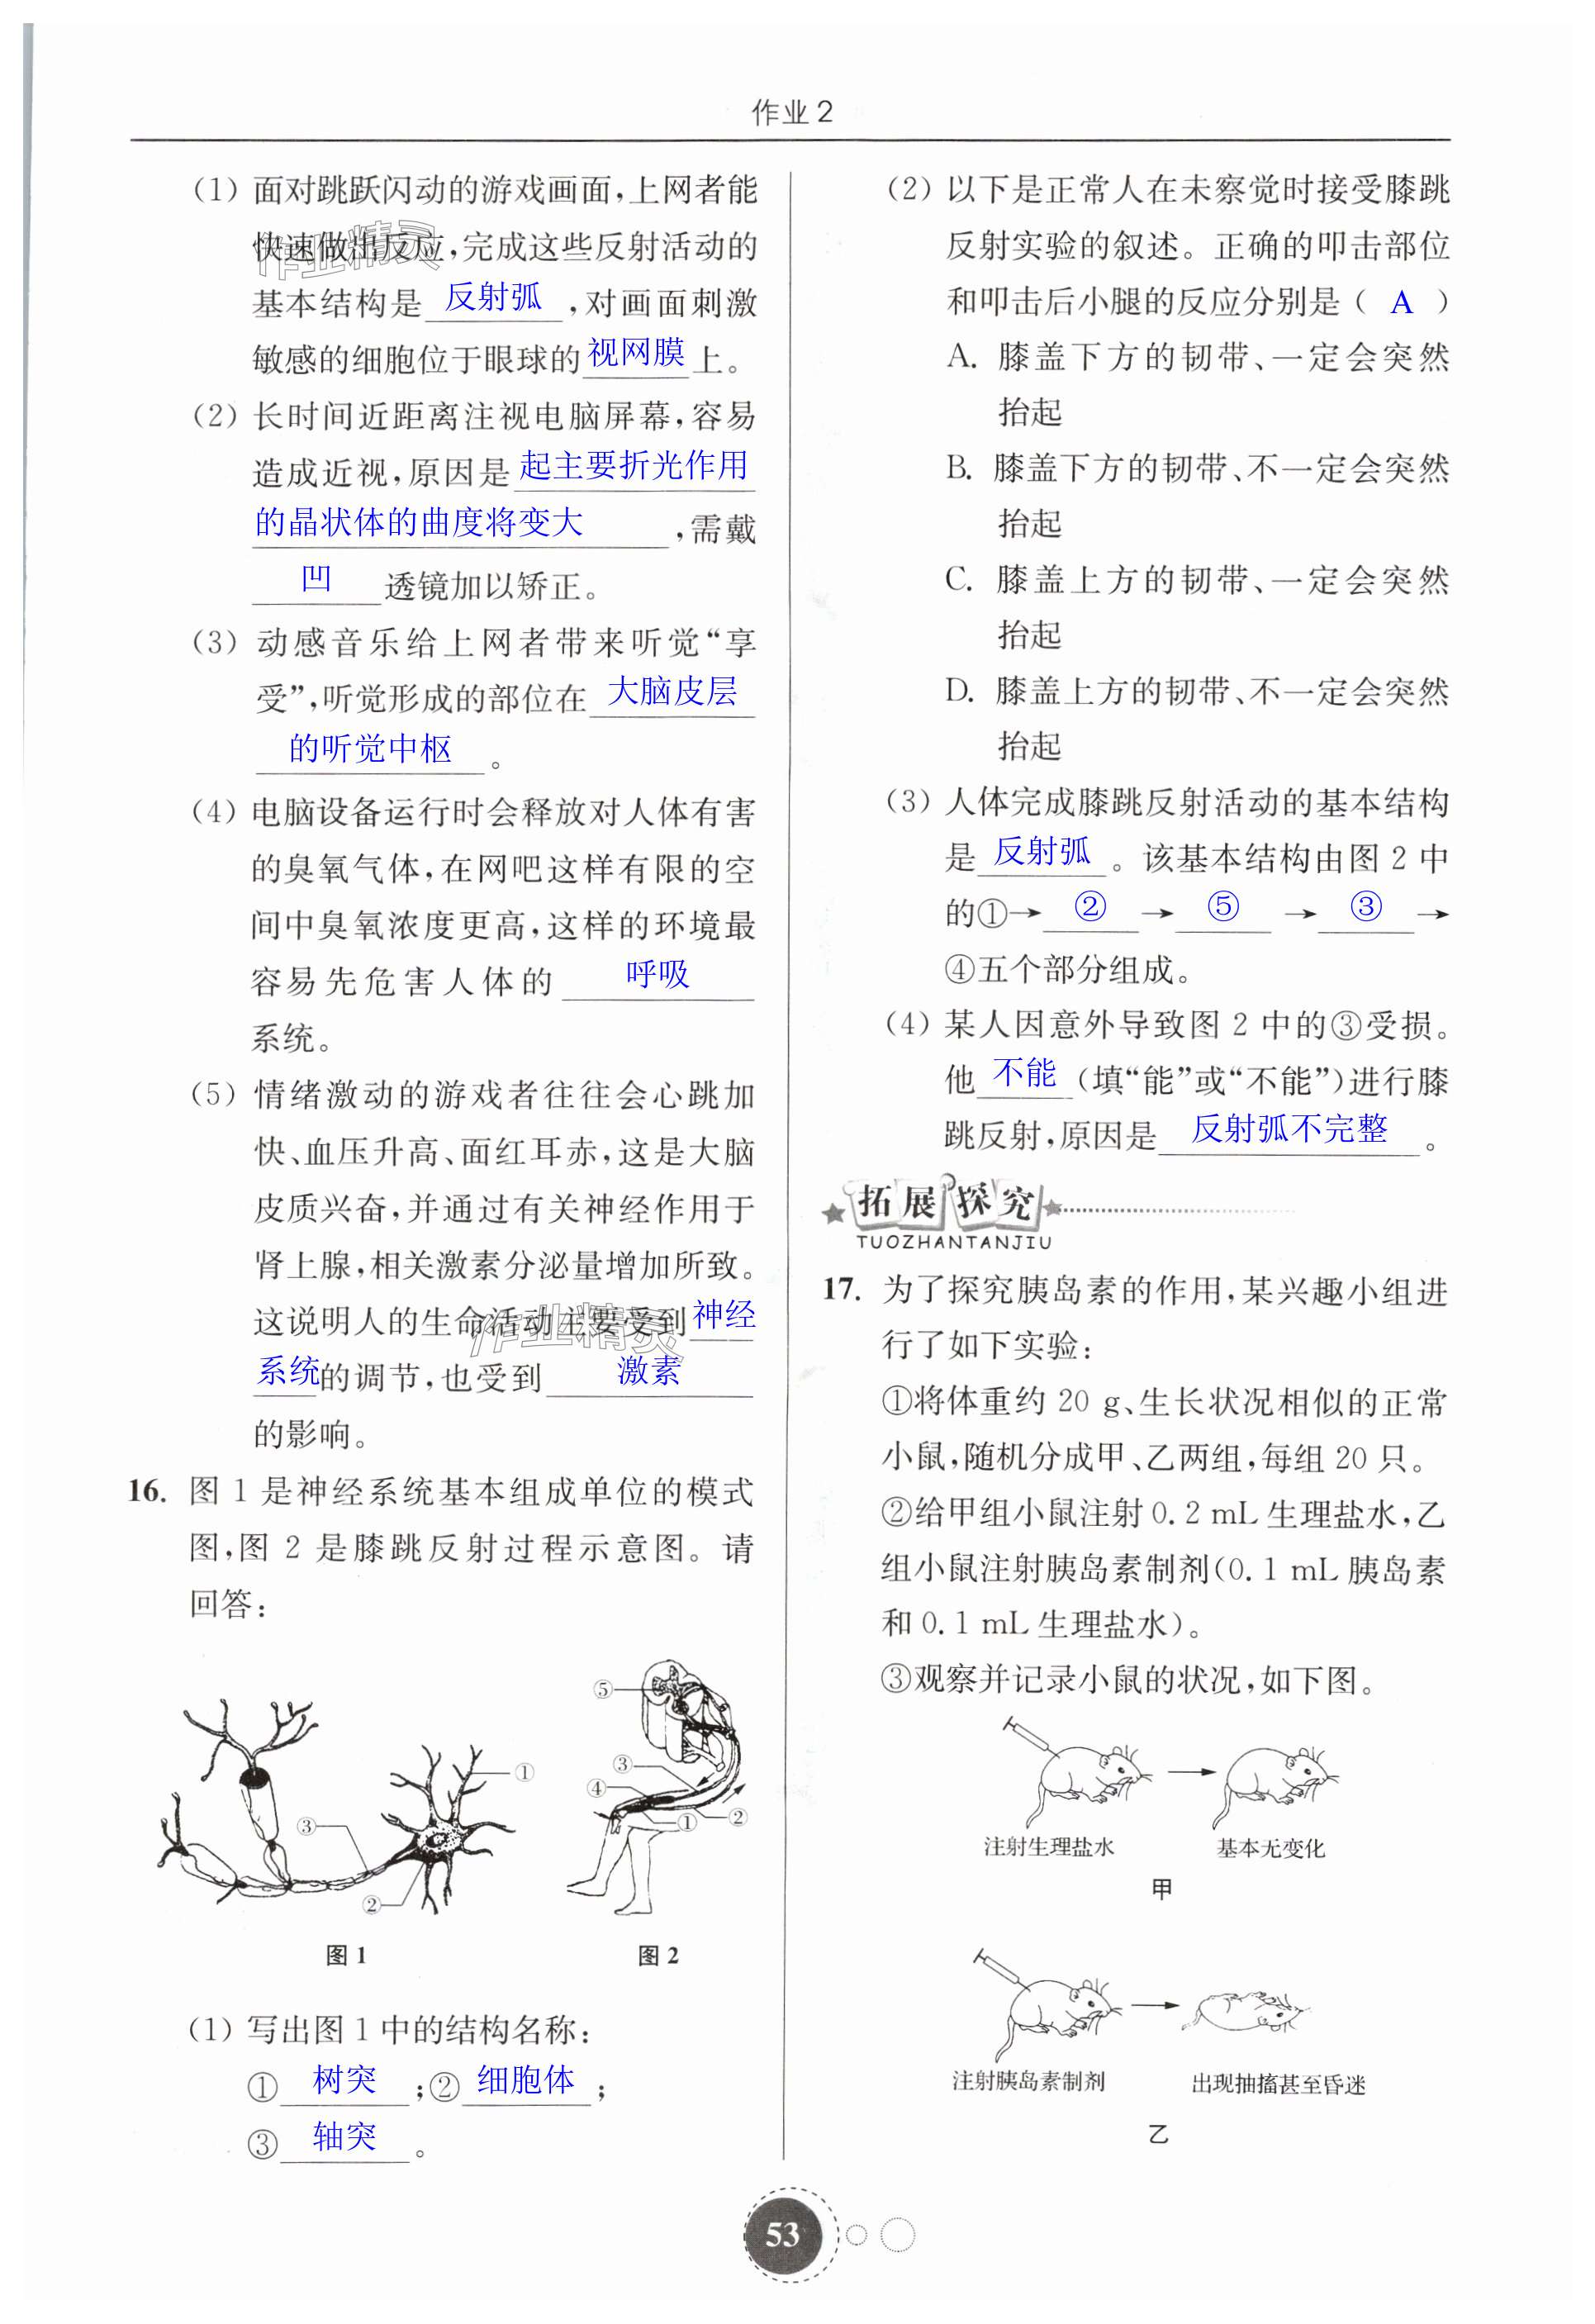 作业2
(1) 面对跳跃闪动的游戏画面,上网者能
快速做出反应,完成这些反射活动的
基本结构是 反射弧 ,对画面刺激
敏感的细胞位于眼球的 视网膜 上。
(2) 长时间近距离注视电脑屏幕,容易
造成近视,原因是 起主要折光作用
的晶状体的曲度将变大 ,需戴
凹 透镜加以矫正。
(3) 动感音乐给上网者带来听觉“享
受”,听觉形成的部位在 大脑皮层
的听觉中枢 。
(4) 电脑设备运行时会释放对人体有害
的臭氧气体,在网吧这样有限的空
间中臭氧浓度更高,这样的环境最
容易先危害人体的 呼吸
系统。
(5) 情绪激动的游戏者往往会心跳加
快、血压升高、面红耳赤,这是大脑
皮质兴奋,并通过有关神经作用于
肾上腺,相关激素分泌量增加所致。
这说明人的生命活动主要受到 神经
系统 的调节,也受到 激素
的影响。
16. 图1是神经系统基本组成单位的模式
图,图2是膝跳反射过程示意图。请
回答:
① ③ ②
⑤ ③ ④ ① ②
图1 图2
(1) 写出图1中的结构名称:
① 树突 ;② 细胞体 ;
③ 轴突 。
(2) 以下是正常人在未察觉时接受膝跳
反射实验的叙述。正确的叩击部位
和叩击后小腿的反应分别是( A )
A. 膝盖下方的韧带、一定会突然
抬起
B. 膝盖下方的韧带、不一定会突然
抬起
C. 膝盖上方的韧带、一定会突然
抬起
D. 膝盖上方的韧带、不一定会突然
抬起
(3) 人体完成膝跳反射活动的基本结构
是 反射弧 。该基本结构由图2中
的①→ ② → ⑤ → ③ →
④五个部分组成。
(4) 某人因意外导致图2中的③受损。
他 不能 (填“能”或“不能”)进行膝
跳反射,原因是 反射弧不完整 。
拓展探究
TUOZHANTANJIU
17. 为了探究胰岛素的作用,某兴趣小组进
行了如下实验:
①将体重约20 g、生长状况相似的正常
小鼠,随机分成甲、乙两组,每组20只。
②给甲组小鼠注射0.2 mL生理盐水,乙
组小鼠注射胰岛素制剂(0.1 mL胰岛素
和0.1 mL生理盐水)。
③观察并记录小鼠的状况,如下图。
注射生理盐水 基本无变化
甲
注射胰岛素制剂 出现抽搐甚至昏迷
乙
53
作业精灵
作业精灵